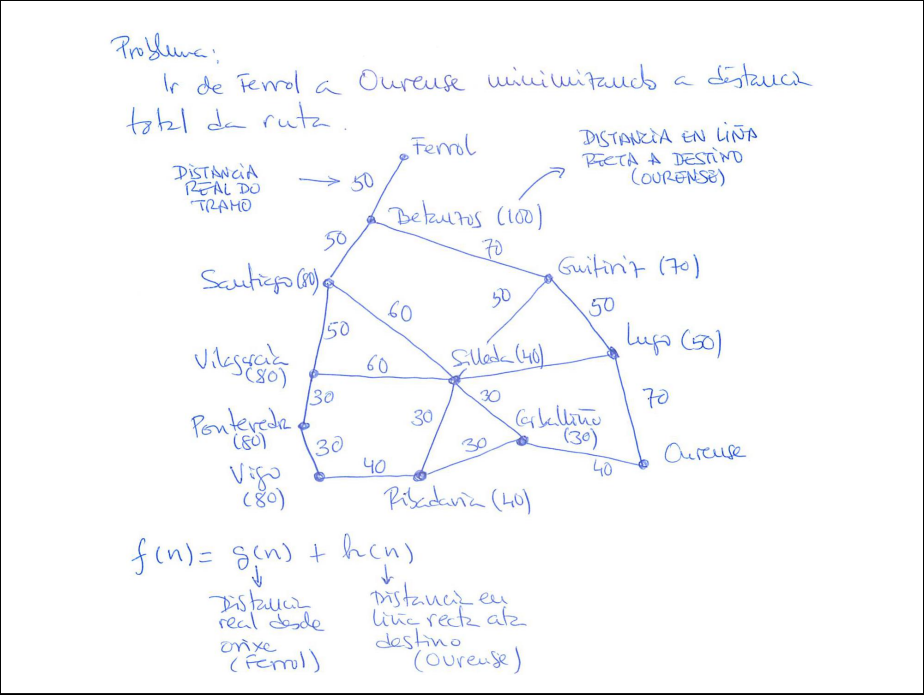 Problema:
Ir de Ferrol a Ourense minimizando a distancia
total da ruta.
Ferrol
DISTANCIA
REAL DO
TRAMO
50
DISTANCIA EN LIÑA
RECTA A DESTINO
(OURENSE)
Betanzos (100)
50
70
Santiago (80)
Guitiriz (70)
60
50
50
50
Lugo (50)
Vilagarcía
(80)
60
Silleda (40)
30
30
30
70
Pontevedra
(80)
Carballiño
(30)
30
30
Ourense
Vigo
(80)
40
40
Ribadavia (40)
f(n) = g(n) + h(n)
Distancia
real desde
orixe
(Ferrol)
Distancia en
liña recta ata
destino
(Ourense)